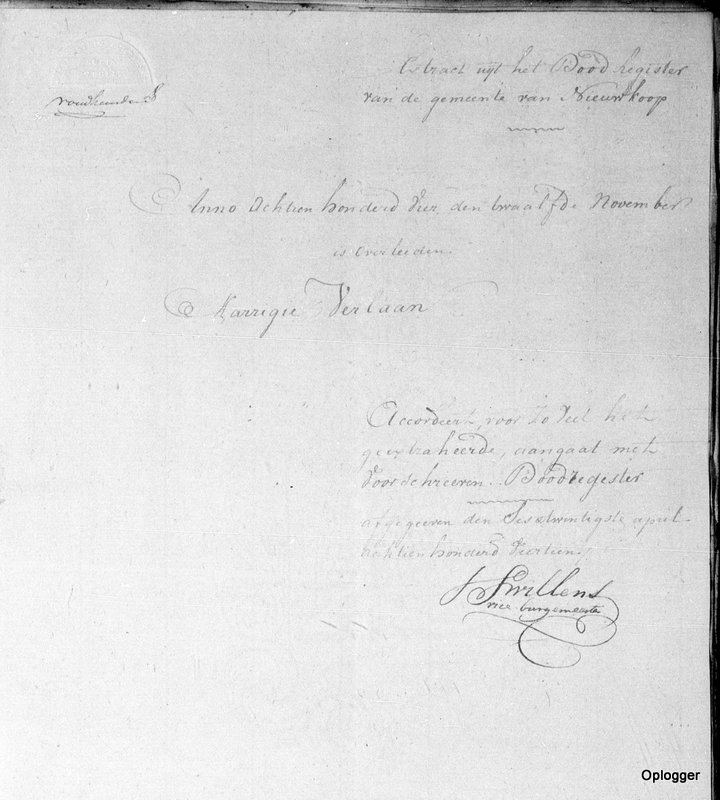 Extract uijt het Dood Register
van de gemeente van Nieuwkoop
Anno Achtien honderd vier, den twaalfde November
is overleeden.
Marrigie Verlaan
Accordeert, voor zo veel het
geextraheerde, aangaat met
voorschreeven Doodregester
afgegeeven den Sesentwintigste april
achtien honderd viertien
Swillens
vice burgemeester
Oplogger